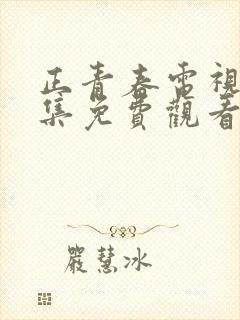 正青春電視
集免費觀看
嚴慧冰